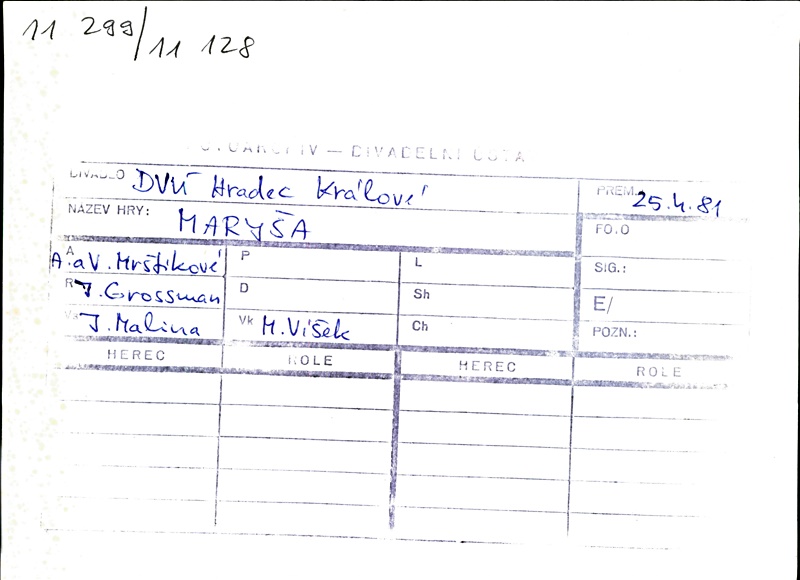 11 299/11 128
FOTOARCHIV — DIVADELNÍ ÚSTAV
DIVADLO DVÚ Hradec Králové PREM. 25.4.81
NÁZEV HRY: MARYŠA FOTO
A A. a V. Mrštíkové P L SIG.:
R J. Grossman D Sh E/
J. Malina Vk M. Víšek Ch POZN.:
HEREC ROLE HEREC ROLE